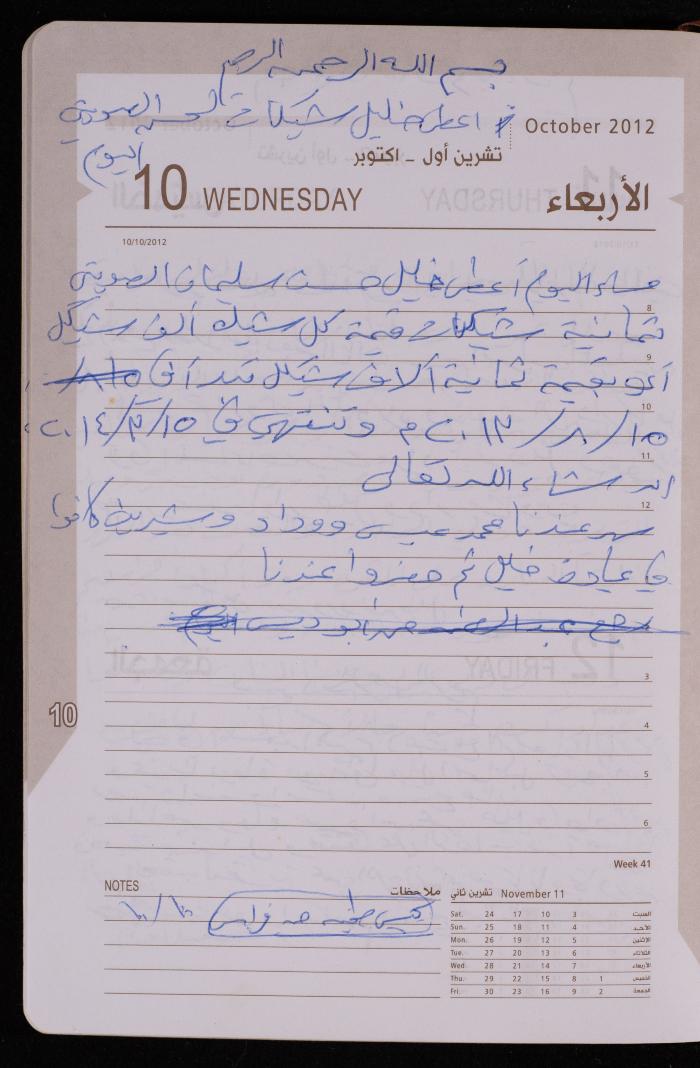 بسم الله الرحمن الرحيم
اعطى خليل شيكات لحسن الصويتي
اليوم
October 2012
تشرين أول - اكتوبر
10 WEDNESDAY
الأربعاء
10/10/2012
مساء اليوم أعطى خليل حسن سليمان الصويتي
ثمانية شيكات قيمة كل شيك ألف شيكل
8
أي بقيمة ثمانية آلاف شيكل تبدأ في
9
١٥/٨/٢٠١٣م وتنتهي في ١٥/٣/٢٠١٤
10
إن شاء الله تعالى
11
سهر عندنا محمد عيسى ووداد وشريف كانوا
12
في عيادة خليل ثم حضروا عندنا
رجع عبد من أبو ديس اليوم
3
10
4
5
6
Week 41
NOTES
ملاحظات
١٠/١٠
تشرين ثاني November 11
Sat. 24 17 10 3 السبت
Sun. 25 18 11 4 الأحد
Mon. 26 19 12 5 الإثنين
Tue. 27 20 13 6 الثلاثاء
Wed. 28 21 14 7 الأربعاء
Thu. 29 22 15 8 1 الخميس
Fri. 30 23 16 9 2 الجمعة